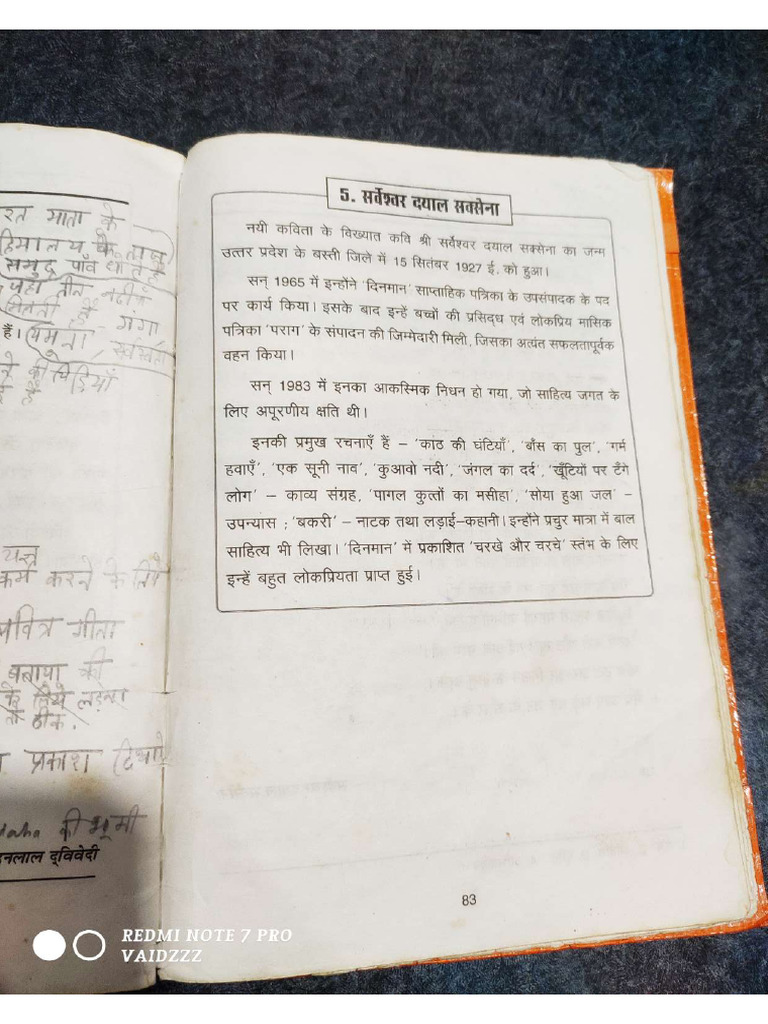 रत माता के
हिमालय के ताज
समुद्र पाँव धोते हैं
यहाँ तीन नदीयाँ
मिलती हैं
गंगा
हैं। यमुना
सर्वस्वती
की चिड़ियाँ
यज्ञ
कर्म करने के लिये
पवित्र गीता
बताया की
के लिये लड़ना
तो ठीक.
प्रकाश दिखाये
की भूमी
हनलाल द्विवेदी
5. सर्वेश्वर दयाल सक्सेना
नयी कविता के विख्यात कवि श्री सर्वेश्वर दयाल सक्सेना का जन्म
उत्तर प्रदेश के बस्ती जिले में 15 सितंबर 1927 ई. को हुआ।
सन् 1965 में इन्होंने 'दिनमान' साप्ताहिक पत्रिका के उपसंपादक के पद
पर कार्य किया। इसके बाद इन्हें बच्चों की प्रसिद्ध एवं लोकप्रिय मासिक
पत्रिका 'पराग' के संपादन की जिम्मेदारी मिली, जिसका अत्यंत सफलतापूर्वक
वहन किया।
सन् 1983 में इनका आकस्मिक निधन हो गया, जो साहित्य जगत के
लिए अपूरणीय क्षति थी।
इनकी प्रमुख रचनाएँ हैं – 'कांठ की घंटियाँ', 'बाँस का पुल', 'गर्म
हवाएँ', 'एक सूनी नाव', 'कुआवो नदी', 'जंगल का दर्द', 'खूँटियों पर टँगे
लोग' – काव्य संग्रह, 'पागल कुत्तों का मसीहा', 'सोया हुआ जल' –
उपन्यास ; 'बकरी' – नाटक तथा लड़ाई-कहानी। इन्होंने प्रचुर मात्रा में बाल
साहित्य भी लिखा। 'दिनमान' में प्रकाशित 'चरखे और चरचे' स्तंभ के लिए
इन्हें बहुत लोकप्रियता प्राप्त हुई।
83
REDMI NOTE 7 PRO
VAIDZZZ